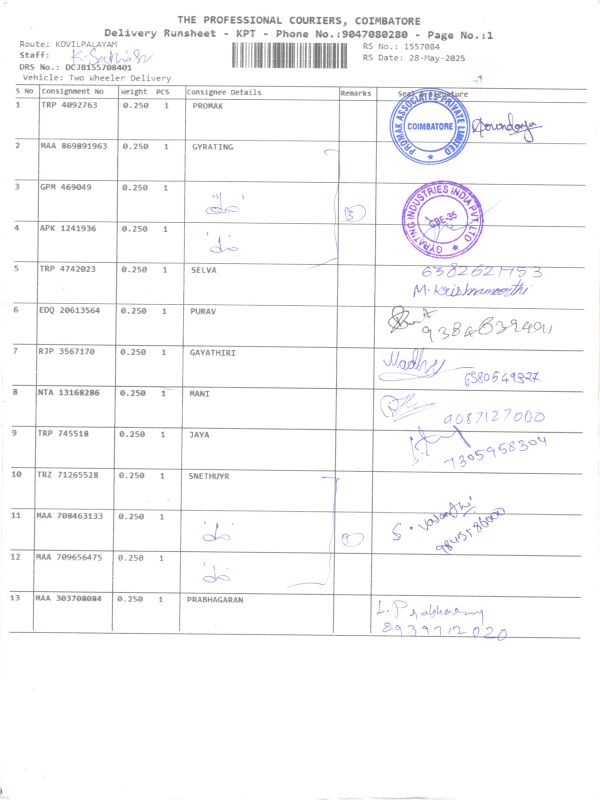 THE PROFESSIONAL COURIERS, COIMBATORE
Delivery Runsheet - KPT - Phone No.:9047080280 - Page No.:1
Route: KOVILPALAYAM
RS No.: 1557084
Staff:
RS Date: 28-May-2025
DRS No.: DCJB155708401
Vehicle: Two Wheeler Delivery
S No Consignment No Weight PCS Consignee Details Remarks Seal & Signature
1 TRP 4092763 0.250 1 PROMAK
PROMAK ASSOCIATES PRIVATE LIMITED
COIMBATORE
2 MAA 869891963 0.250 1 GYRATING
3 GPM 469049 0.250 1 "do" 3
GYRATING INDUSTRIES INDIA PVT. LTD
CBE-35
4 APK 1241936 0.250 1 "do"
5 TRP 4742023 0.250 1 SELVA
M. Krishnamoorthi
6 EDQ 20613564 0.250 1 PURAV
7 RJP 3567170 0.250 1 GAYATHIRI
Madhu
6380549327
8 NTA 13168286 0.250 1 MANI
9087127000
9 TRP 745518 0.250 1 JAYA
7305958304
10 TRZ 71265528 0.250 1 SNETHUYR
11 MAA 708463133 0.250 1 "do"
S. Vasanthi
12 MAA 709656475 0.250 1 "do"
13 MAA 303708084 0.250 1 PRABHAGARAN
8939712020